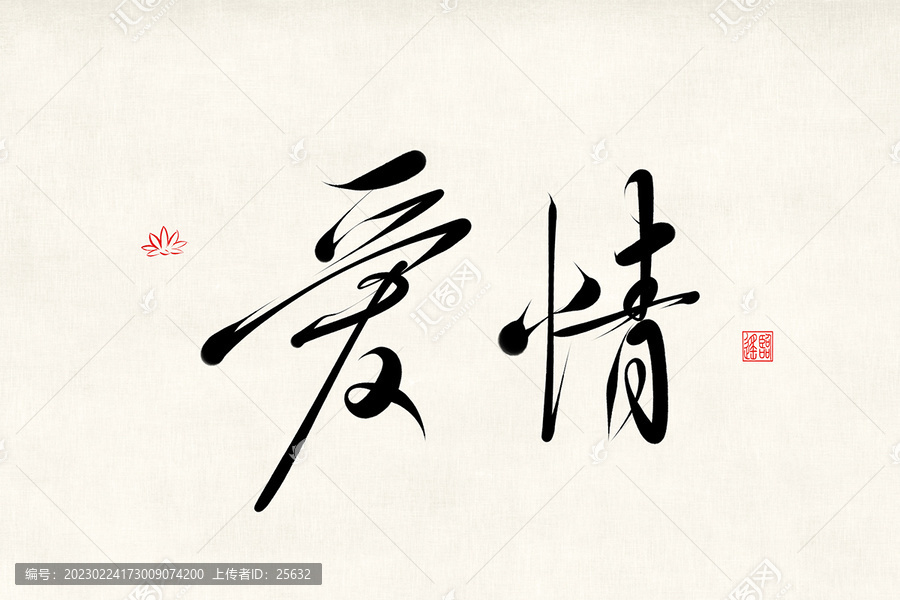 爱情
臨遙
编号：20230224173009074200 上传者ID：25632